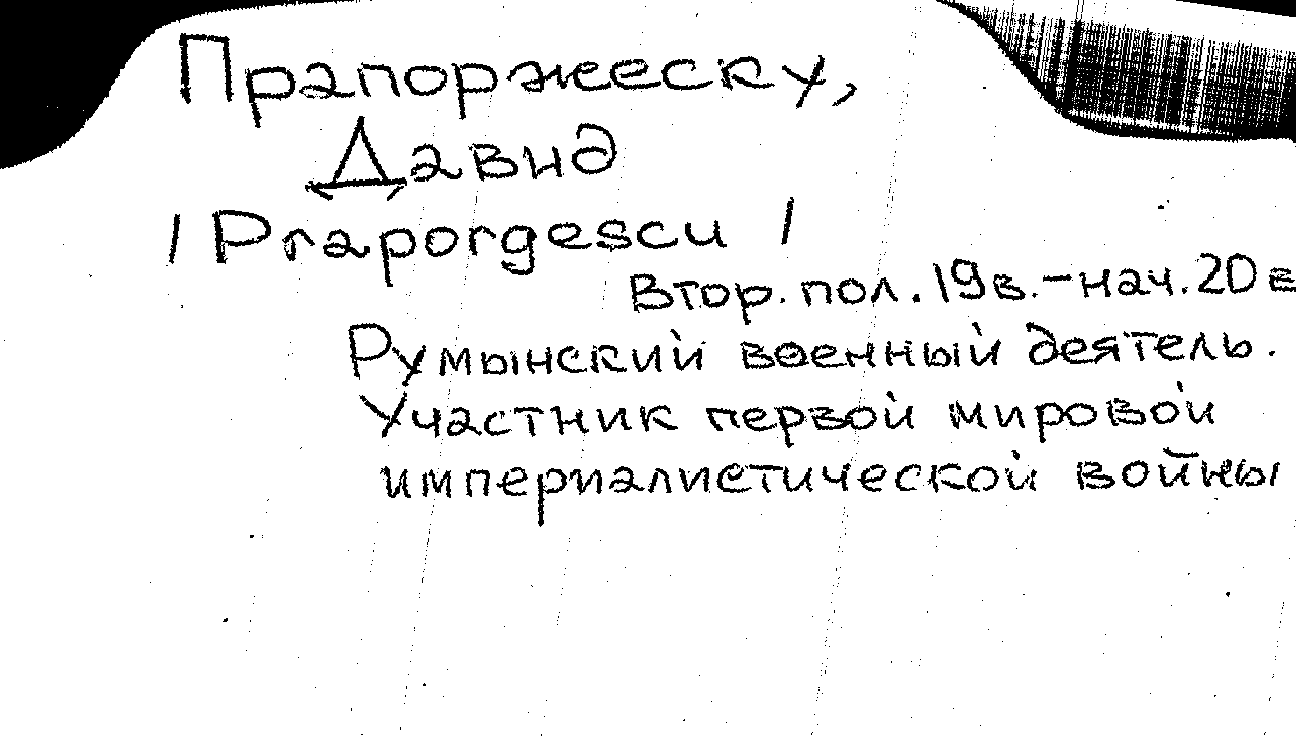 Прапоржеску,
Давид
/ Praporgescu /
Втор. пол. 19 в. – нач. 20 в
Румынский военный деятель.
Участник первой мировой
империалистической войны